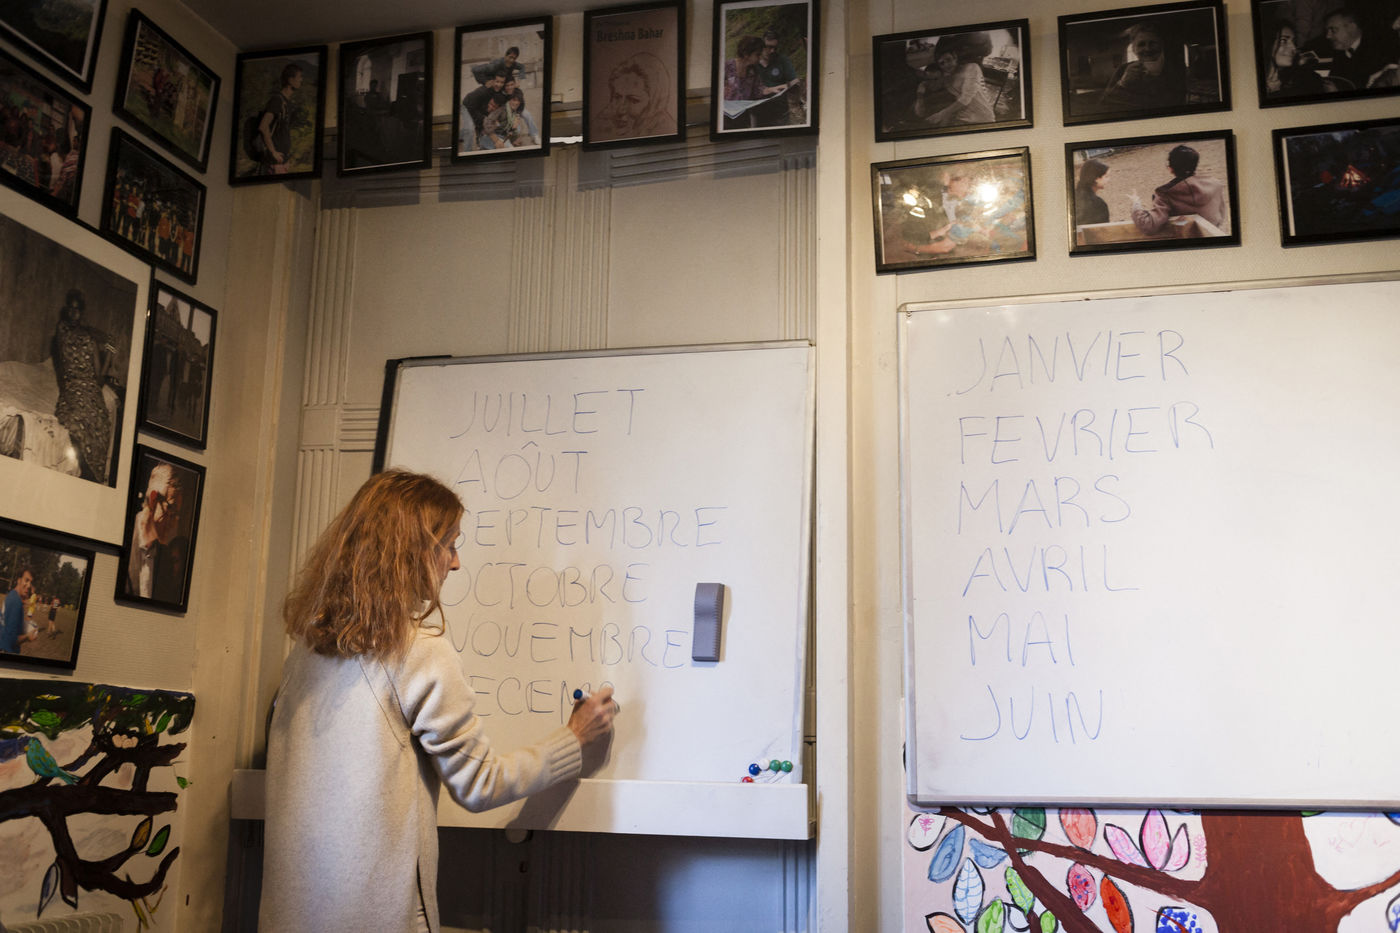 Breshna Bahar
JUILLET
AOÛT
SEPTEMBRE
OCTOBRE
NOVEMBRE
ECEMB
JANVIER
FEVRIER
MARS
AVRIL
MAI
JUIN